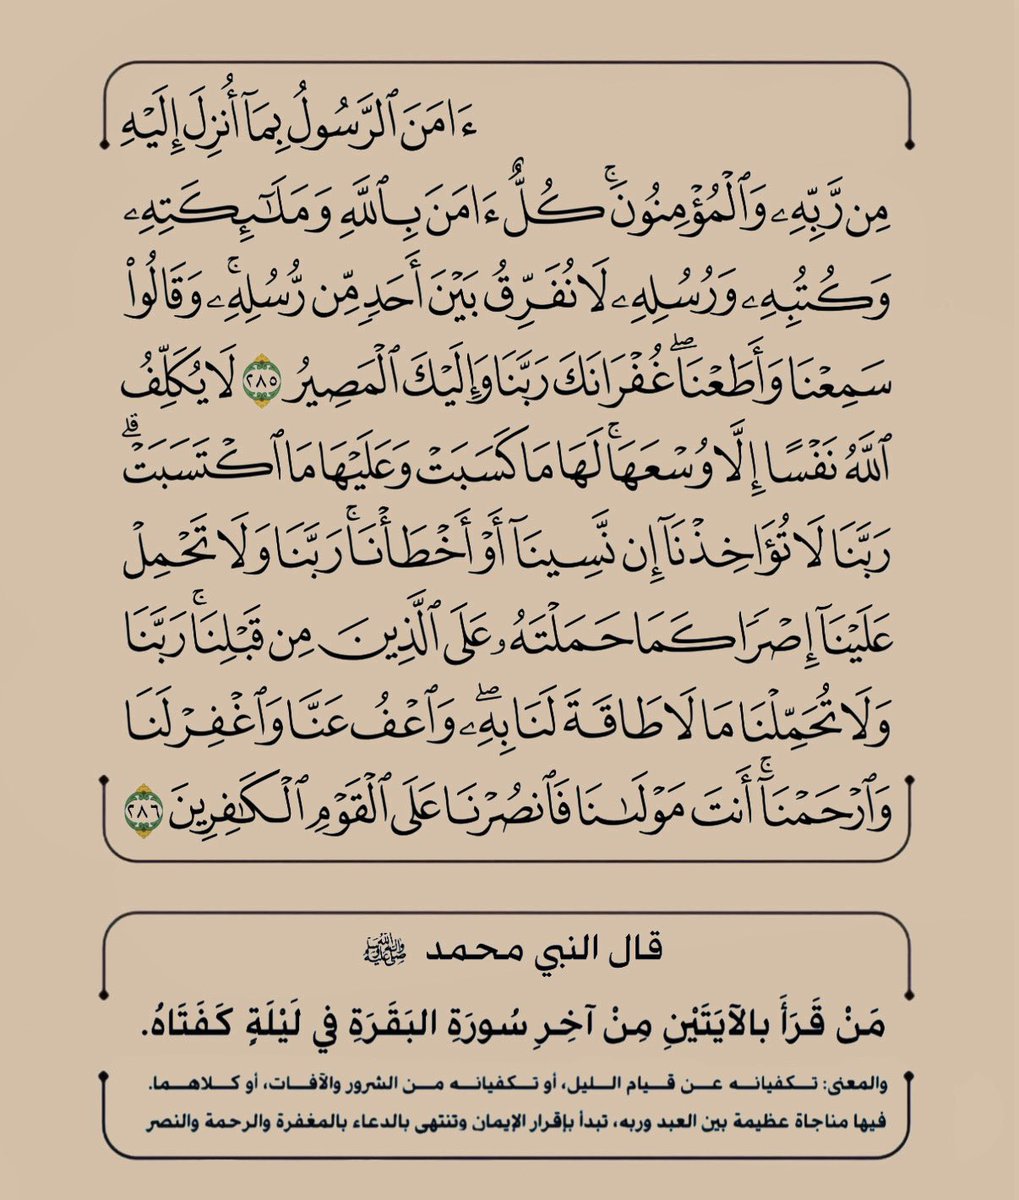 ءَامَنَ ٱلرَّسُولُ بِمَآ أُنزِلَ إِلَيْهِ
مِن رَّبِّهِۦ وَٱلْمُؤْمِنُونَ ۚ كُلٌّ ءَامَنَ بِٱللَّهِ وَمَلَـٰٓئِكَتِهِۦ
وَكُتُبِهِۦ وَرُسُلِهِۦ لَا نُفَرِّقُ بَيْنَ أَحَدٍ مِّن رُّسُلِهِۦ ۚ وَقَالُوا۟
سَمِعْنَا وَأَطَعْنَا ۖ غُفْرَانَكَ رَبَّنَا وَإِلَيْكَ ٱلْمَصِيرُ ٢٨٥ لَا يُكَلِّفُ
ٱللَّهُ نَفْسًا إِلَّا وُسْعَهَا ۚ لَهَا مَا كَسَبَتْ وَعَلَيْهَا مَا ٱكْتَسَبَتْ ۗ
رَبَّنَا لَا تُؤَاخِذْنَآ إِن نَّسِينَآ أَوْ أَخْطَأْنَا ۚ رَبَّنَا وَلَا تَحْمِلْ
عَلَيْنَآ إِصْرًا كَمَا حَمَلْتَهُۥ عَلَى ٱلَّذِينَ مِن قَبْلِنَا ۚ رَبَّنَا
وَلَا تُحَمِّلْنَا مَا لَا طَاقَةَ لَنَا بِهِۦ ۖ وَٱعْفُ عَنَّا وَٱغْفِرْ لَنَا
وَٱرْحَمْنَآ ۚ أَنتَ مَوْلَىٰنَا فَٱنصُرْنَا عَلَى ٱلْقَوْمِ ٱلْكَـٰفِرِينَ ٢٨٦
قال النبي محمد ﷺ
مَنْ قَرَأَ بالآيَتَيْنِ مِنْ آخِرِ سُورَةِ البَقَرَةِ في لَيْلَةٍ كَفَتَاهُ.
والمعنى: تكفيانه عن قيام الليل، أو تكفيانه من الشرور والآفات، أو كلاهما.
فيها مناجاة عظيمة بين العبد وربه، تبدأ بإقرار الإيمان وتنتهى بالدعاء بالمغفرة والرحمة والنصر